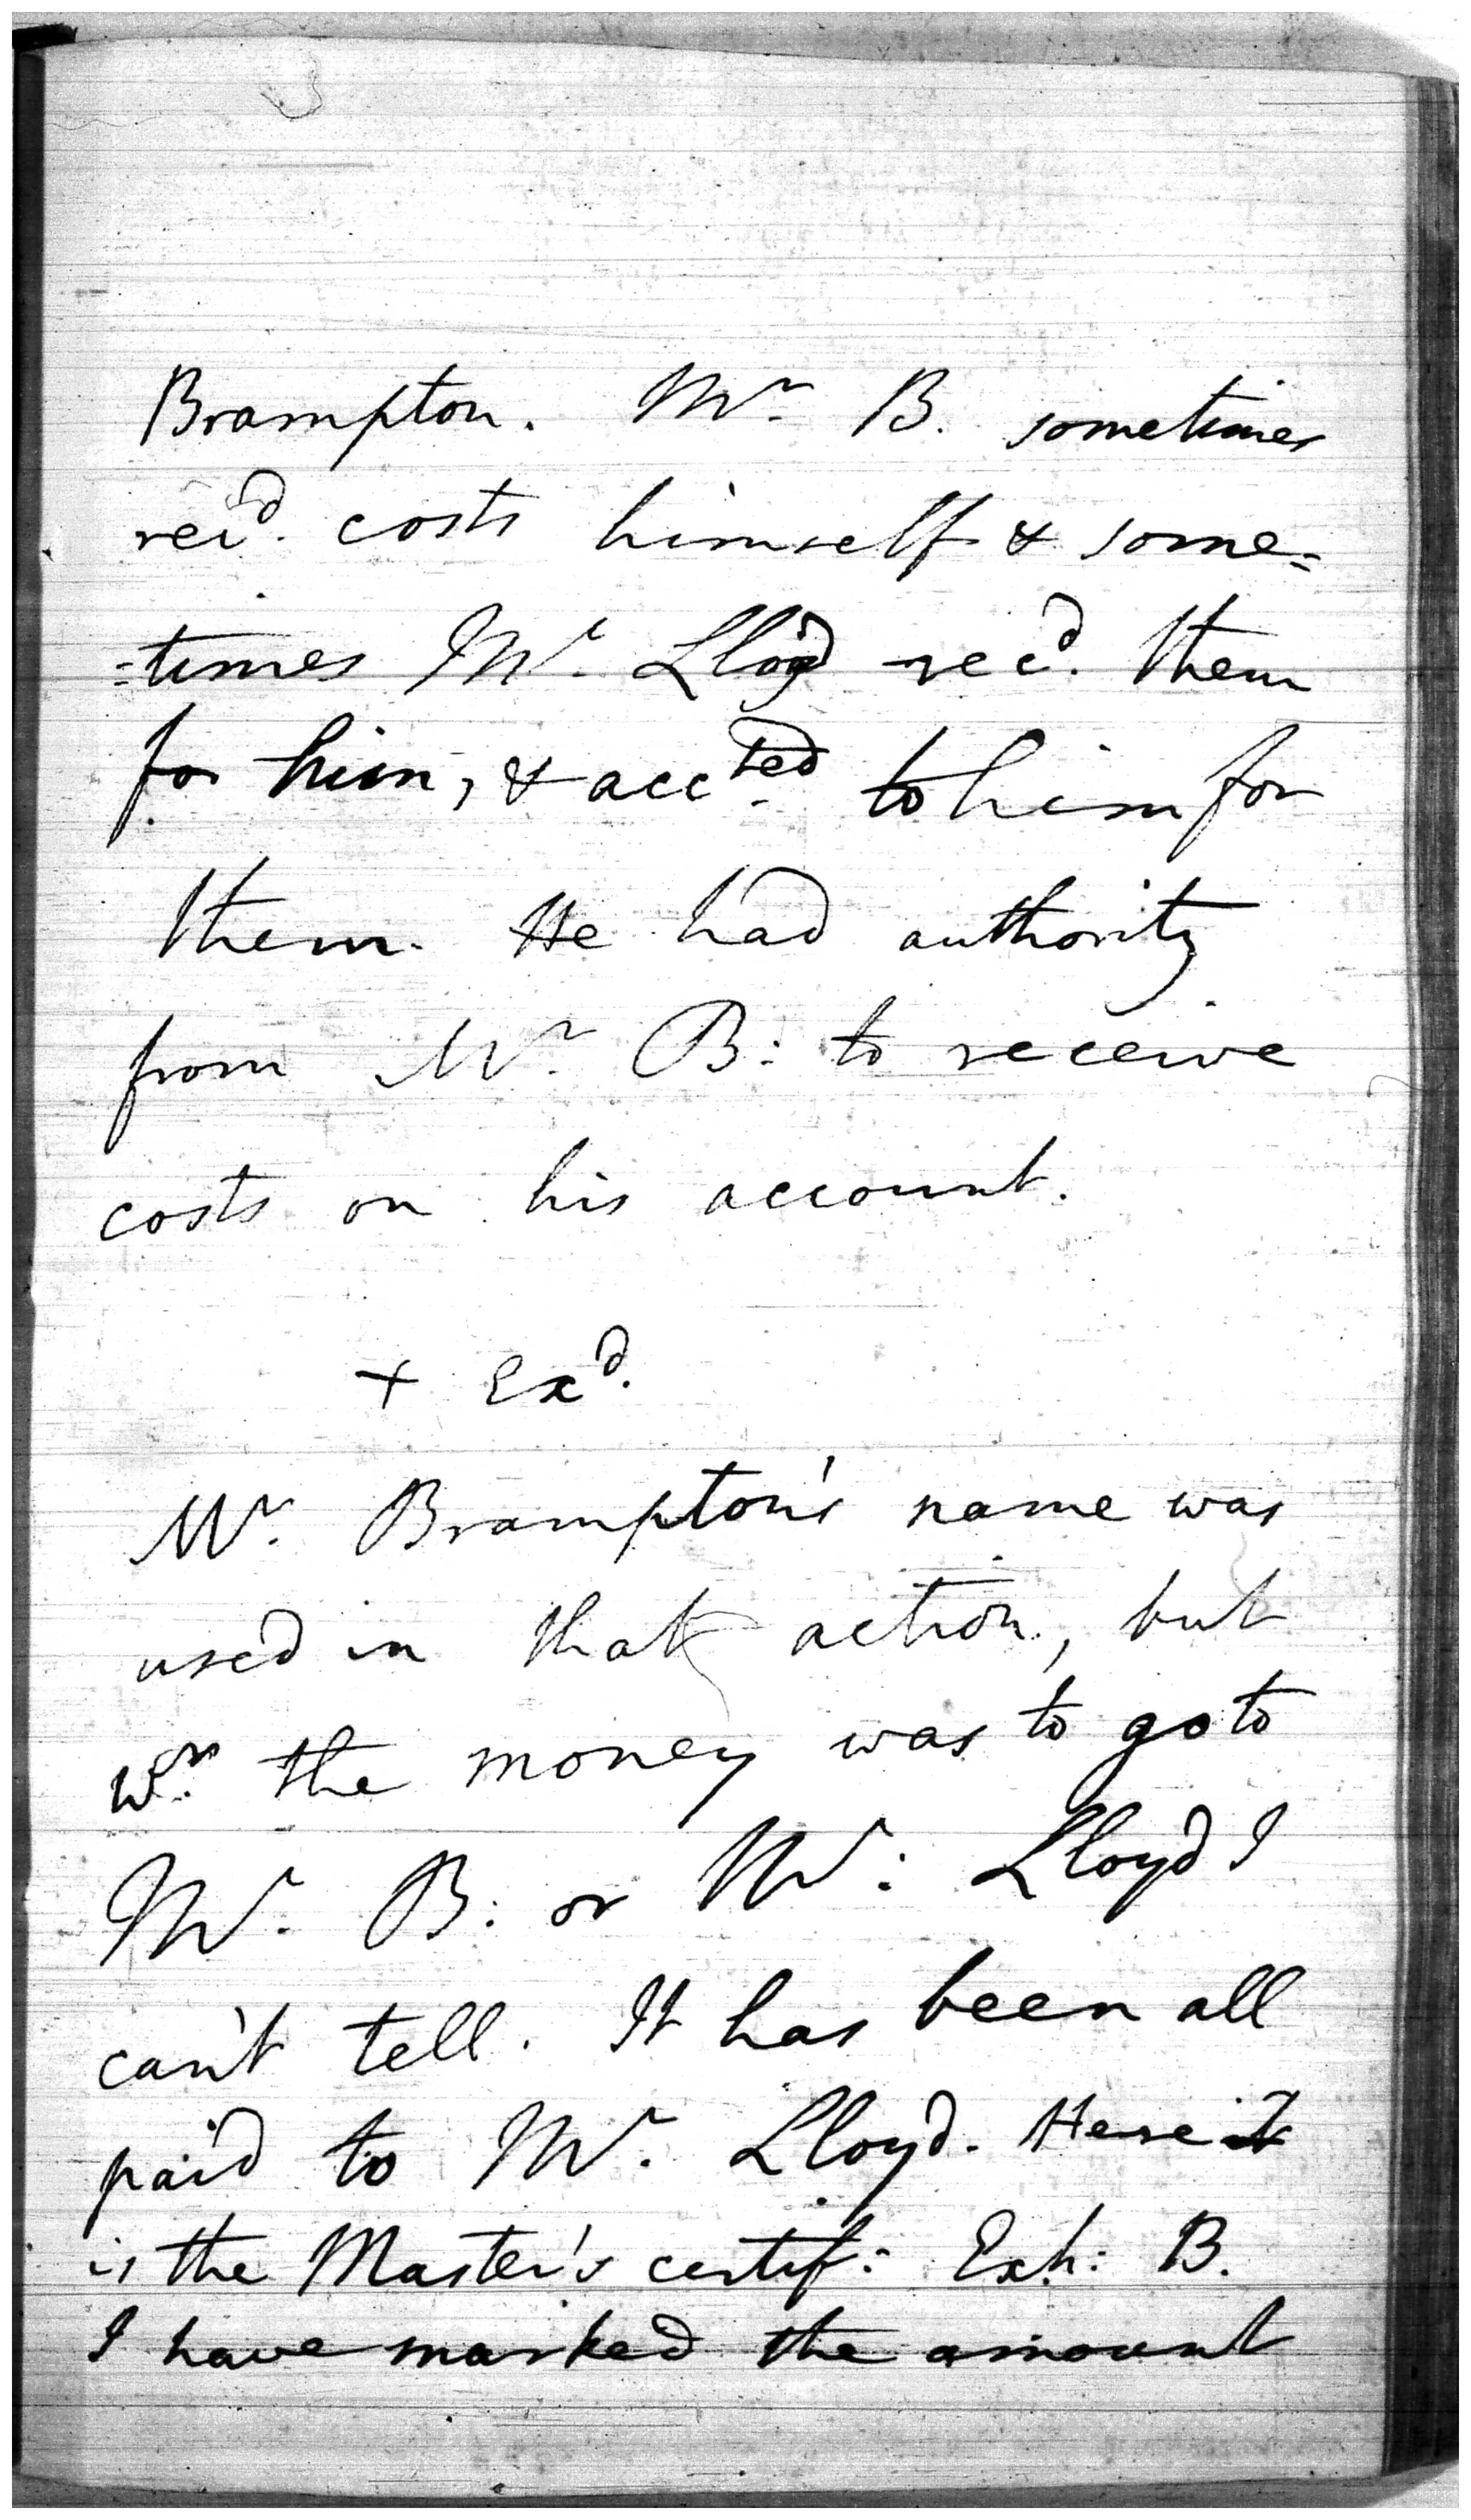 Brampton. Mr. B. sometimes
rec'd. costs himself & some=
=times Mr. Lloyd rec'd. them
for him, & accted. to him for
them. He had authority
from Mr. B: to receive
costs on his account.
+ Exd.
Mr. Brampton's name was
used in that action, but
wr. the money was to go to
Mr. B: or Mr: Lloyd I
can't tell. It has been all
paid to Mr. Lloyd. Here it
is the Master's certif: Exh: B.
I have marked the amount